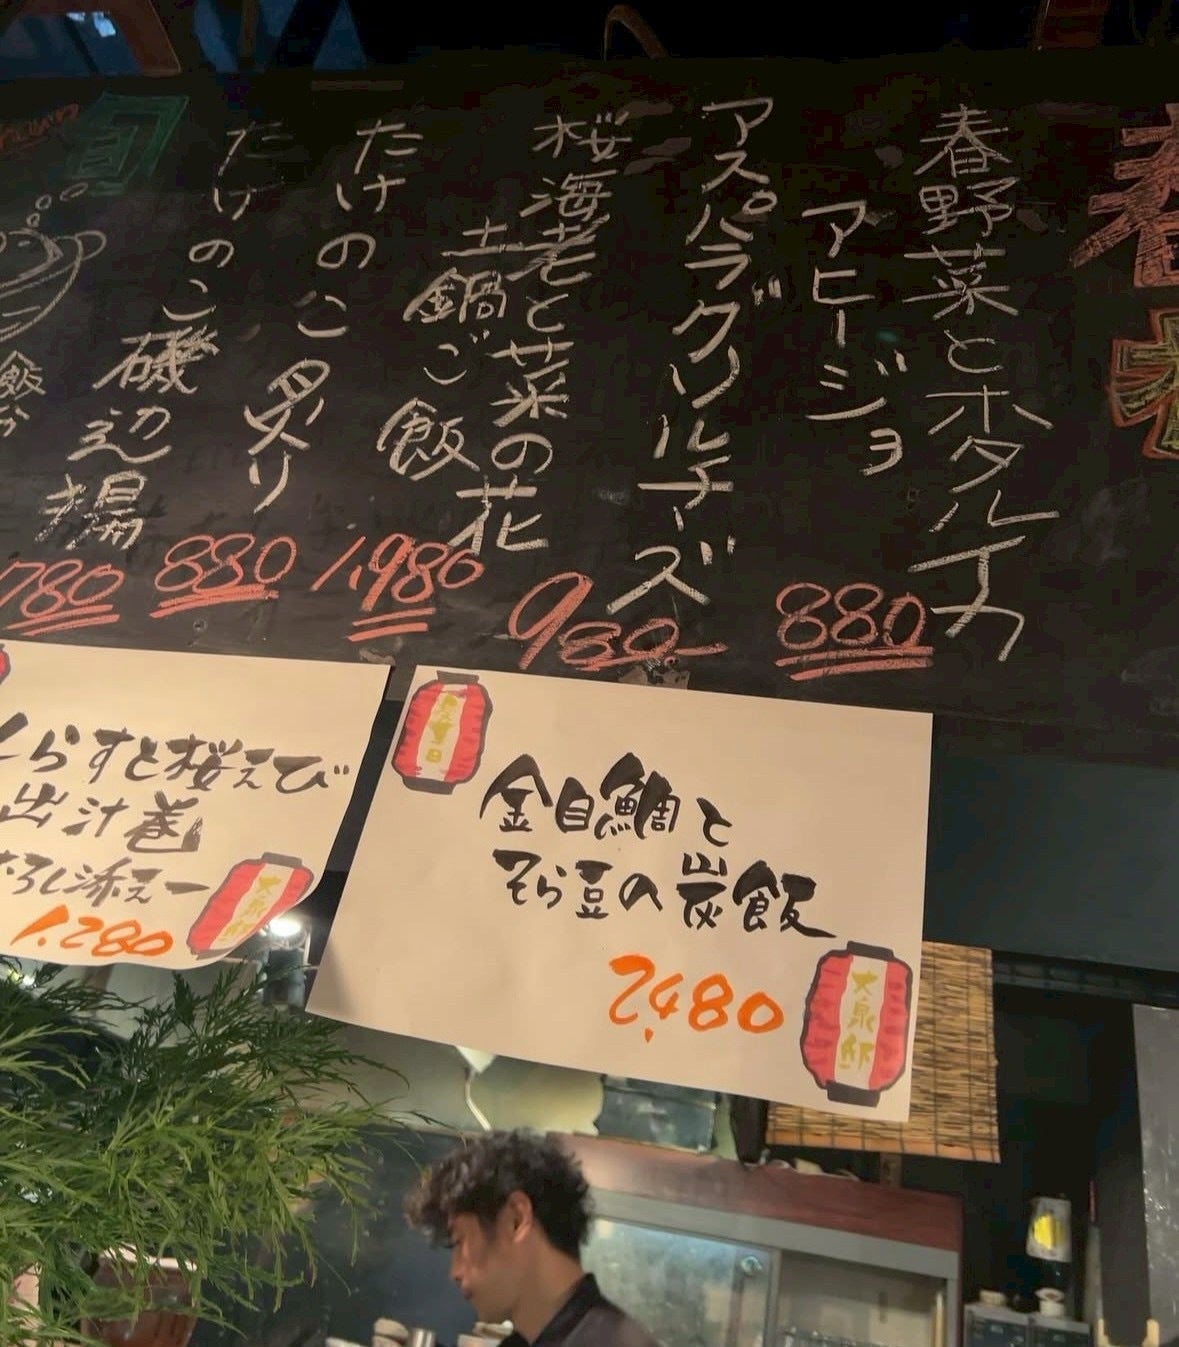 春
春野菜とホタルイカ
アヒージョ
880
アスパラグリルチーズ
980
桜海老と菜の花
土鍋ご飯
1,980
たけのこ炙り
880
たけのこ磯辺揚
780
旬
金目鯛と
そら豆の炭飯
2,480
大泉邸
らすと桜えび
出汁巻
ろし添えー
1,280
大泉邸